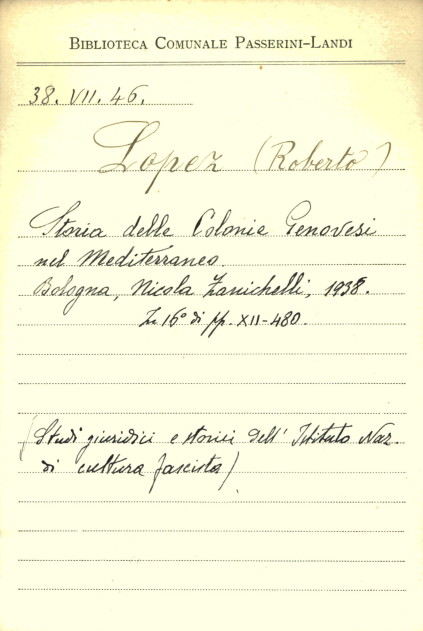 BIBLIOTECA COMUNALE PASSERINI-LANDI
38. VII. 46.
Lopez (Roberto)
Storia delle Colonie Genovesi
nel Mediterraneo.
Bologna, Nicola Zanichelli, 1938.
In 16° di pp. XII-480.
(Studi giuridici e storici dell' Istituto Naz.
di cultura fascista)